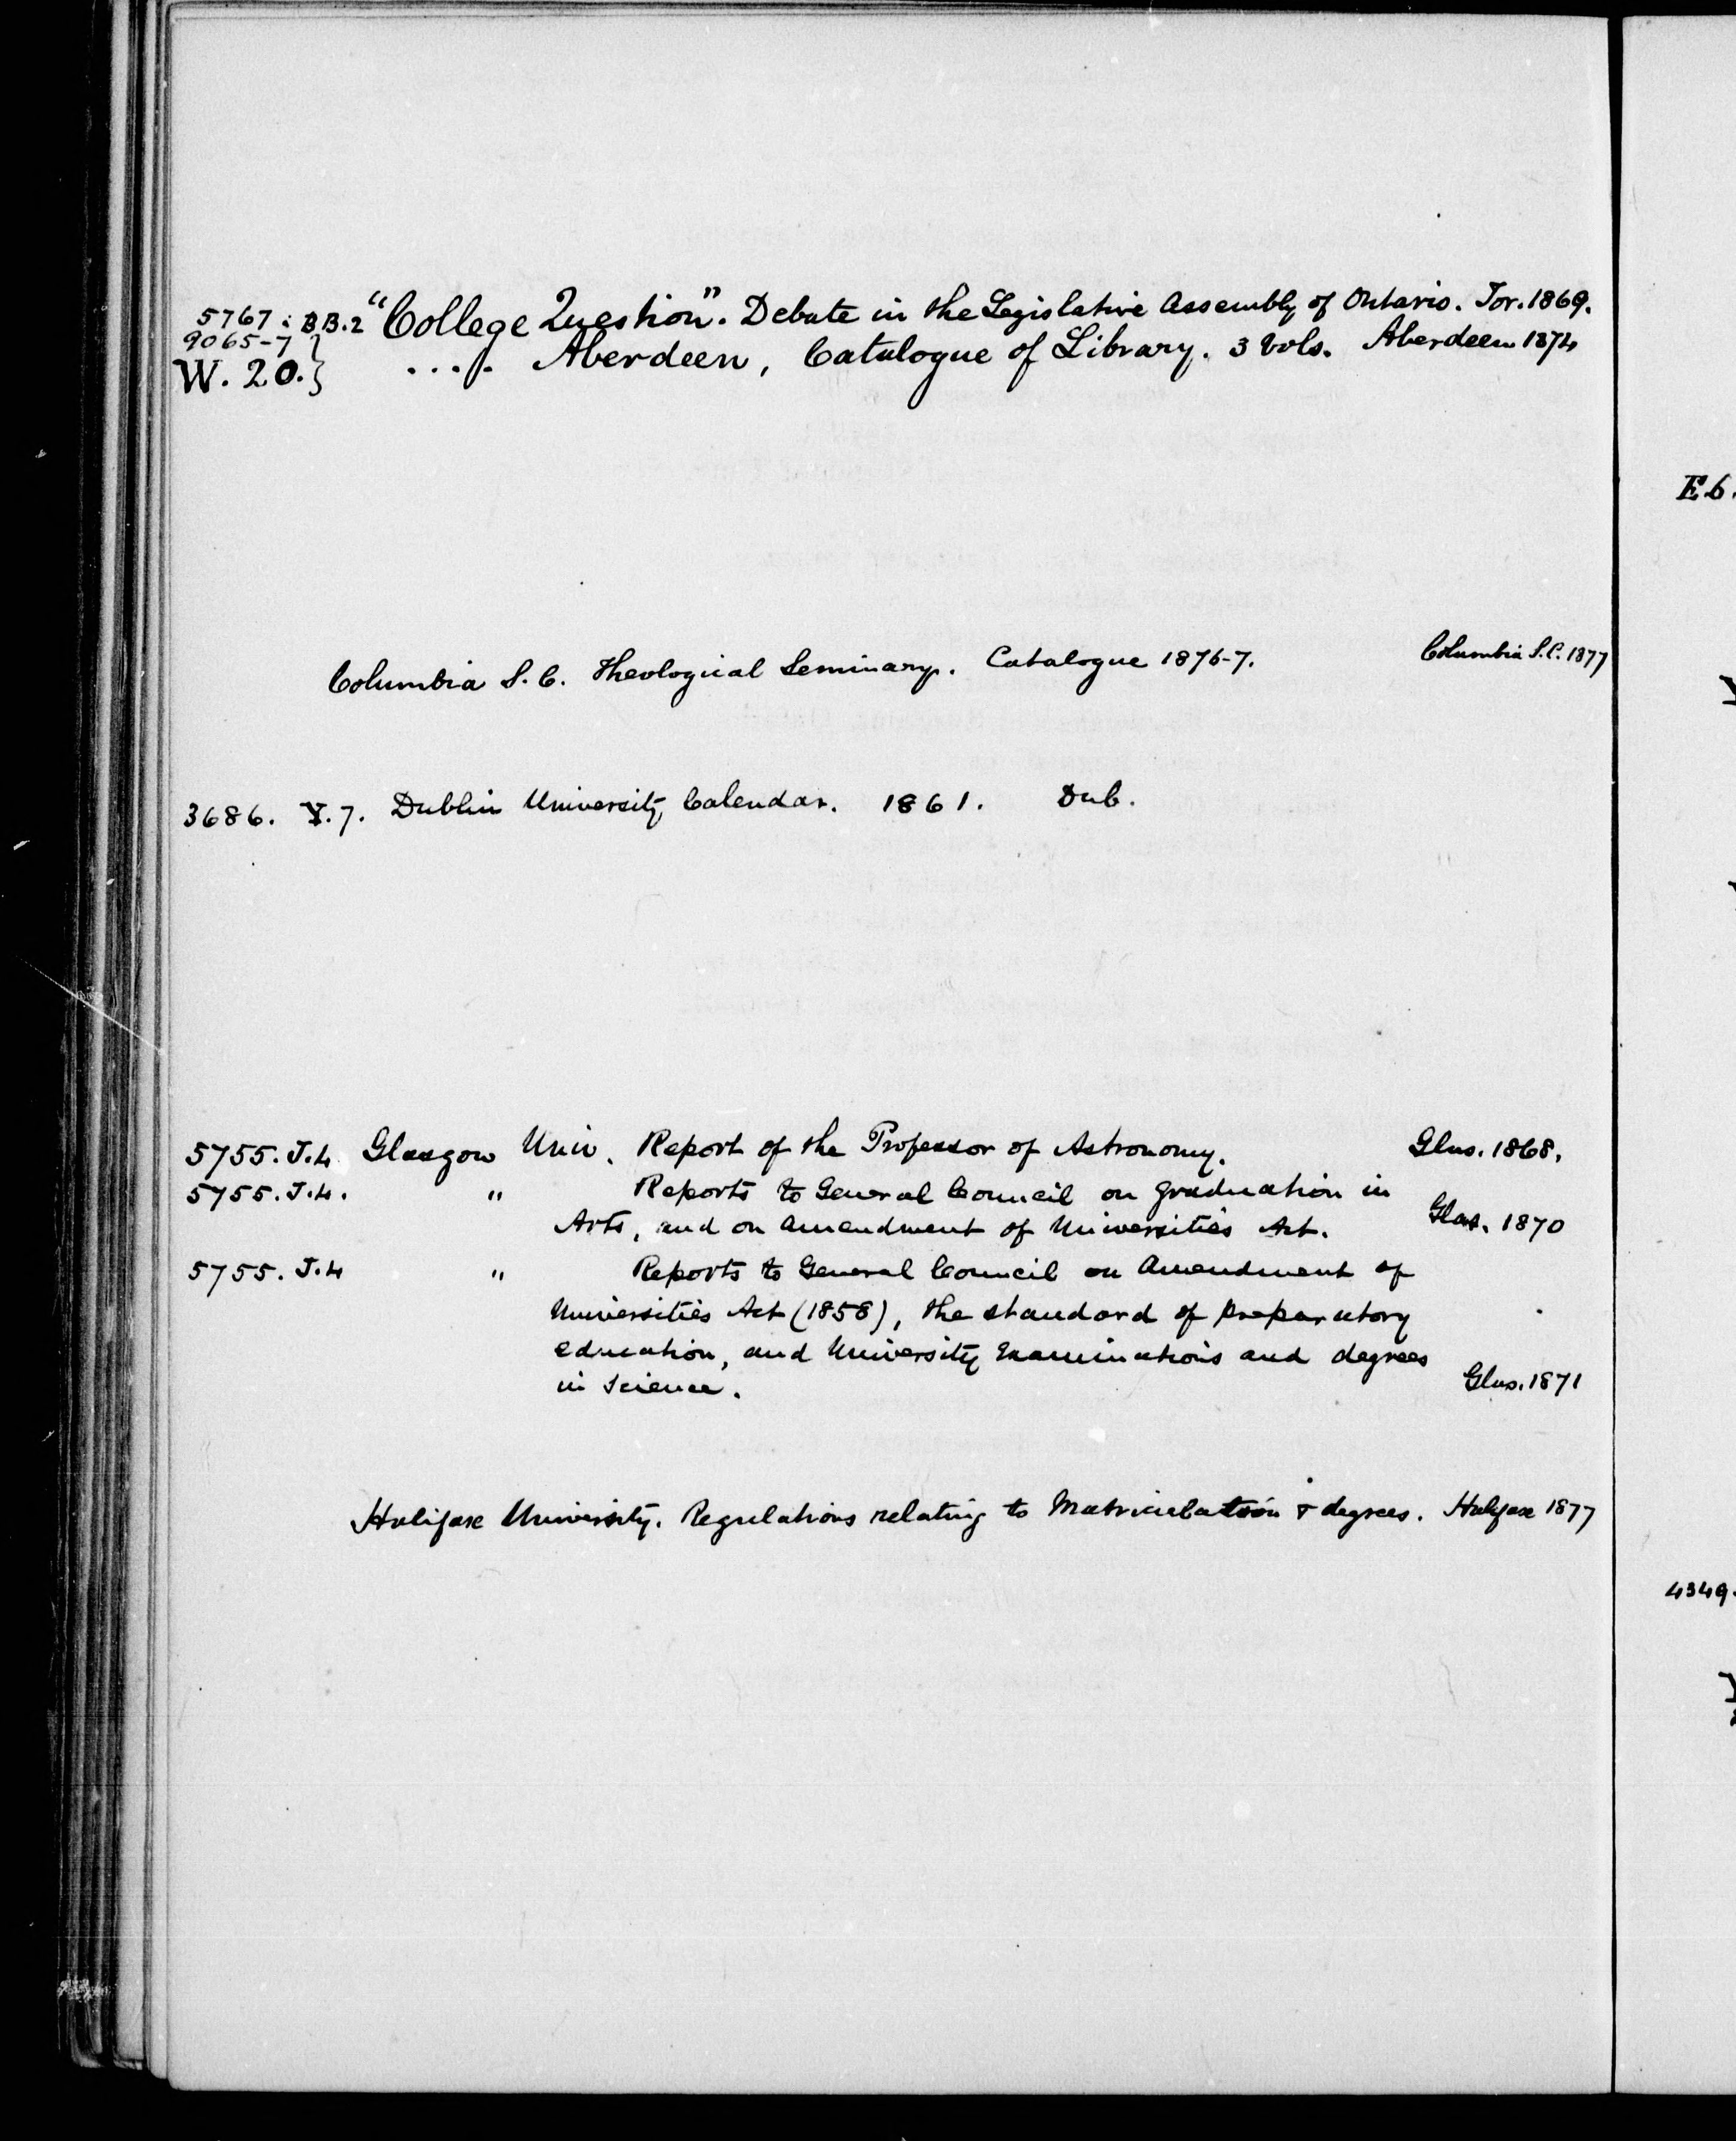 5767 : BB.2 "College Question". Debate in the Legislative Assembly of Ontario. Tor. 1869.
9065-7 }
W. 20. } .... Aberdeen, Catalogue of Library. 3 vols. Aberdeen 1874
E6.
Columbia S.C. Theological Seminary. Catalogue 1876-7. Columbia S.C. 1877
3686. Y.7. Dublin University Calendar. 1861. Dub.
5755. J.4. Glasgow Univ. Report of the Professor of Astronomy. Glas. 1868.
5755. J.4. " Reports to General Council on graduation in
Arts, and on Amendment of Universities Act. Glas. 1870
5755. J.4 " Reports to General Council on Amendment of
Universities Act (1858), the standard of preparatory
education, and University Examinations and degrees
in Science. Glas. 1871
Halifax University. Regulations relating to Matriculation & degrees. Halifax 1877
4349.